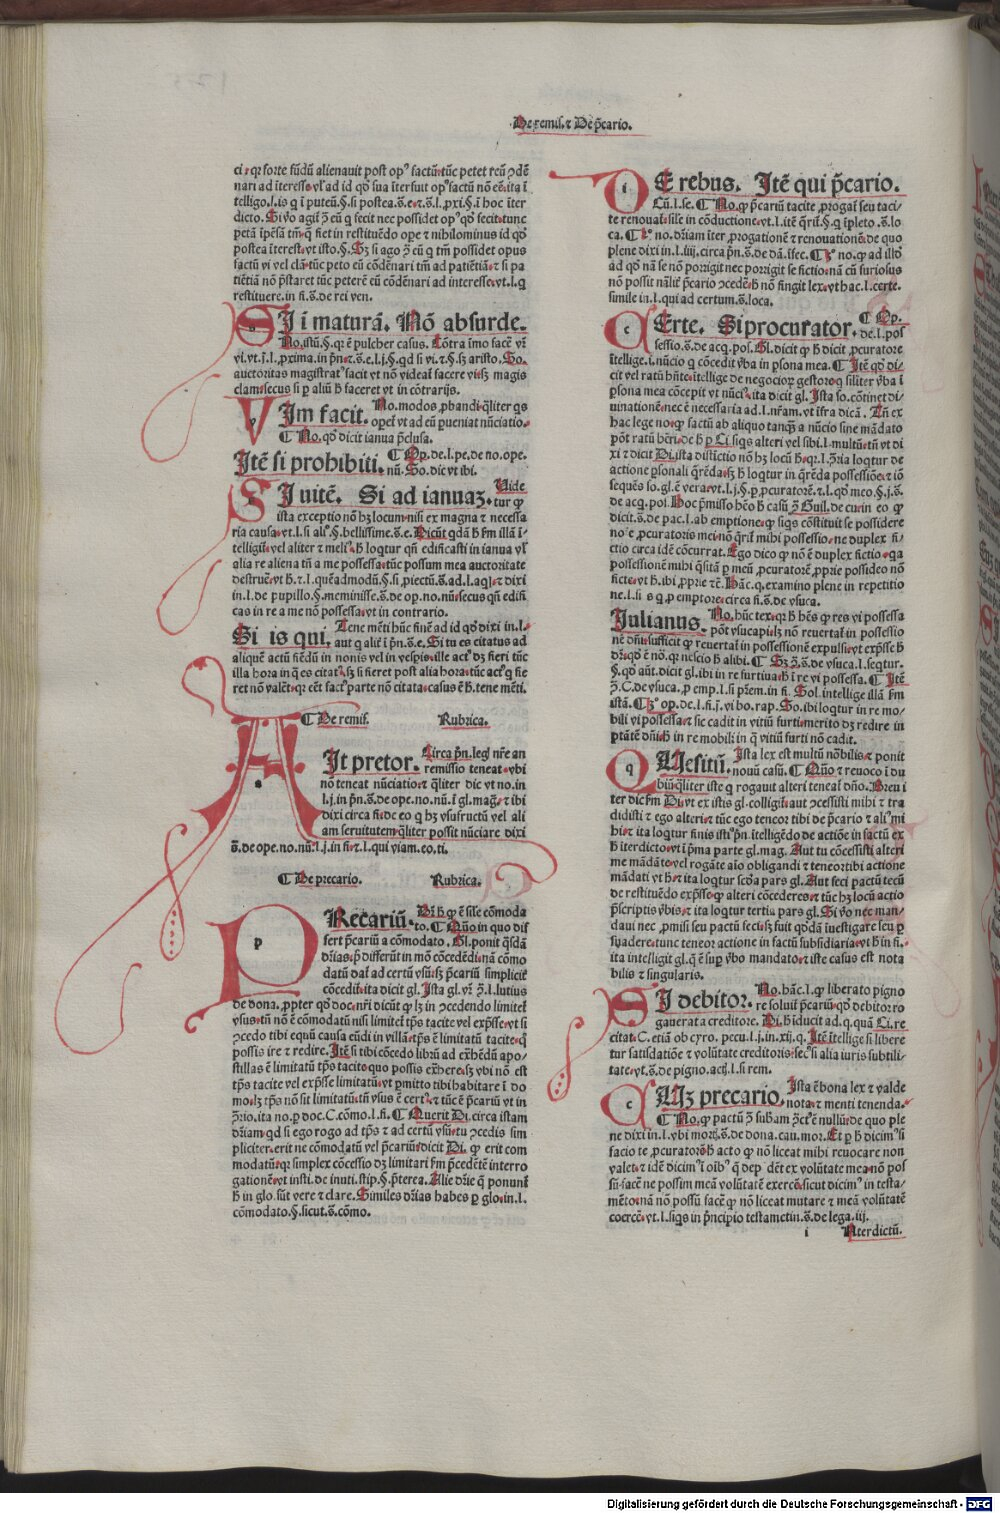 De remis. ⁊ De p̄cario.
ci⁊ qr forte fūdū alienauit post opꝰ factū⁊ tūc petet reū ↄdē
nari ad īteresse⁊ vl̓ ad id qd̓ sua īterfuit opꝰ factū nō eē⁊ ita ī
telligo.l.is q ī puteū.§.si postea.s̄.e.⁊.s̄.l.ꝓxi.§.ī hoc iter
dicto. Si v̓o agit̄ ꝯ̄ eū q fecit nec possidet opꝰ qd̓ fecit⁊ tunc
petā īpēsā tm̄⁊ q̄ fiet in restituēdo ope ⁊ nihilominus id qd̓
postea īterest⁊ vt isto.§. Sꝫ si ago ꝯ̄ eū q tm̄ possidet opus
factū vi vel clā⁊ tūc peto eū cōdēnari tm̄ ad patiētiā⁊ ⁊ si pa
tiētiā nō p̄staret tūc peterē eū cōdēnari ad interesse⁊ vt.l.q
restituere.in fi.s̄.de rei ven.
SI ī maturā. Nō absurde.
No.istū.§.qr ē pulcher casus. Cōtra īmo facē vr̄
vi.vt.s̄.l.ꝓxima.in p̄n.⁊.s̄.e.l.j.§.qd si vi.⁊.§.sꝫ aristo. So.
auctoritas magistratꝰ facit vt nō videat̄ facere vi⁊ sꝫ magis
clam⁊ secus si ꝑ aliū h̄ faceret vt in cōtrarijs.
VIm facit. No.modos ꝓhandi⁊ qlit̓er qs
opet̄ vt ad eū pueniat nūciatio.
¶ No.qd̓ dicit ianua p̄clusa.
Itē si prohibiti. ¶ Op.de.l.pe.de no.ope.
nū. So.dic vt ibi.
SI vitē. Si ad ianuaꝫ. Vide
tur ꝙ
ista exceptio nō hꝫ locum⁊ nisi ex magna ⁊ necessa
ria causa⁊ vt.l.si aliꝰ.§.bellissime.s̄.e. Dicūt qdā h̄ fm illā ī⸗
telligit̄⁊ vel aliter ⁊ meliꝰ⁊ h̄ loqtur qn̄ edificasti in ianua vl̓
alia re aliena tn̄ a me possessa⁊ tūc possum mea auctoritate
destruē⁊ vt h̄.⁊.l.quēadmodū.§.si ꝓiectū.s̄.ad.l.aql.⁊ dixi
in.l.de pupillo.§.meminisse.s̄.de op.no.nū⁊ secus qn̄ edifi
cas in re a me nō possessa⁊ vt in contrario.
Si is qui. Tene mēti hūc finē ad id qd̓ dixi in.l.
aut q alit̓ ī p̄n.s̄.e. Si tu es citatus ad
aliquē actū fiēdū in nonis vel in vesp̄is⁊ ille actꝰ dꝫ fieri tūc
illa hora in q̄ eo citatꝰ⁊ sꝫ si fieret post alia hora⁊ tūc actꝰ q fie
ret nō valēt⁊ qr eēt factꝰ parte nō citata⁊ casus ē h̄.tene mēti.
¶ De remis. Rubrica.
AIt pretor. Circa p̄n.leg̓ nr̄e an
remissio teneat⁊ vbi
nō teneat nūciatio⁊ ⁊ qlit̓er dic vt no.in
l.j.in p̄n.s̄.de ope.no.nū.ī gl.mag̓.⁊ ibi
dixi circa fi.de eo q hꝫ vsufructū vel ali
am seruitutem⁊ qlit̓er possit nūciare dixi
s̄.de ope.no.nū.l.j.in fi.⁊.l.qui viam.eo.ti.
¶ De precario. Rubrica.
PRecariū. Dr̄ h̄ ꝙ ē sil̓e cōmoda
to. ¶ Qn̄o in quo dif
fert p̄cariū a cōmodato. Gl.ponit qsdā
dr̄ias.p̄ differūt in mō cōcedēdi⁊ nā cōmo
datū dat̄ ad certū vsū⁊ sꝫ p̄cariū simplicit̓
cōcedit̄⁊ ita dicit gl. Ista gl.vr̄ ꝯ̄.l.lutius
de dona.ꝓpter qd̓ doc.nr̄i dicūt ꝙ lꝫ in ↄcedendo limitet̄
vsus⁊ tn̄ nō ē cōmodatū nisi limitet̄ tp̄s tacite vel exp̄sse⁊ vt si
ↄcedo tibi equū causa eūdi in villā⁊ tp̄s ē limitatū tacite⁊ qd̓
possis ire ⁊ redire. Itē si tibi cōcedo librū ad exhēdū apo⸗
stillas ē limitatū tp̄s tacite⁊ quo possis exhere⁊ sꝫ vbi nō est
tp̄s tacite vel exp̄sse limitatū⁊ vt pmitto tibi habitare ī do
mo⁊ lꝫ tp̄a nō sit limitatū⁊ tn̄ vsus ē certꝰ⁊ ⁊ tūc ē p̄cariū vt in
ꝯ̄rio.ita no.ꝑ doc.C.cōmo.l.fi. ¶ Querit Di.circa istam
dr̄iam⁊ qd si ego rogo ad tp̄s ⁊ ad certū vsū⁊ tu ↄcedis sim
pliciter⁊ erit ne cōmodatū vel p̄cariū⁊ dicit Di. ꝙ erit com
modatū⁊ qr simplex cōcessio dꝫ limitari fm p̄cedētē interro
gationē⁊ vt insti.de inuti.stip.§.p̄terea. Alie dr̄ie q̄ ponunt̄
h̄ in glo.sūt vere ⁊ clare. Similes dr̄ias habes ꝑ glo⁊ in.l.
cōmodato.§.sicut.s̄.cōmo.
DE rebus. Itē qui p̄cario.
Cū.l.se. ¶ No.ꝙ p̄cariū tacite ꝓrogat̄ seu taci⸗
te renouat̄⁊ sil̓e in cōductione⁊ vt.l.itē qrit̄.§.q īpleto.s̄.lo
ca. ¶ Itē no.dr̄iam īter ꝓrogationē ⁊ renouationē⁊ de quo
plene dixi in.l.iiij.circa p̄n.s̄.de dā.īfec. ¶ Itē no.ꝙ ad illd̓
ad qd̓ nā se nō porrigit nec porrigit se fictio⁊ nā cū furiosus
nō possit nālit̓ p̄cario ↄcedē⁊ h̄ nō fingit lex⁊ vt hac.l.certe.
simile in.l.qui ad certum.s̄.loca.
CErte. Si procurator. ¶ Op.
de.l.pos
sessio.s̄.de acq.pos. Gl.dicit ꝙ h̄ dicit ꝓcuratorē
ītellige.i.nūcio q concedit v̓ba in ꝑsona mea. ¶ Itē qd̓ di⸗
cit vel ratū hn̄te⁊ ītellige de negocioꝝ gestore⁊ q silit̓er v̓ba ī
ꝑsona mea cōcepit vt nūciꝰ⁊ ita dicit gl. Ista so.cōtinet di
uinationē⁊ nec ē necessaria ad.l.nr̄am.vt īfra dicā. Tn̄ ex
hac lege no.ꝙ factū ab aliquo tanqꝫ a nūcio sine mādato
pōt ratū hēri⁊ de h̄ ꝑ Ci.siqs alteri vel sibi.l.multū⁊ tn̄ vt di
xi ⁊ dicit Di.ista distīctio nō hꝫ locū h̄⁊ qr.l.ꝯ̄ria loqtur de
actione ꝑsonali qrēda⁊ sꝫ h̄ loqtur in qrēda possessiōe⁊ ⁊ iō
sequēs so.gl.ē vera⁊ vt.l.j.§.ꝑ ꝓcuratorē.⁊.l.qd̓ meo.§.j.s̄.
de acq.pos. Hoc p̄misso hēo h̄ casū ꝯ̄ Guil.de cu⁊ in eo ꝙ
dicit.s̄.de pac.l.ab emptione⁊ ꝙ siqs cōstituit se possidere
noīe ꝓcuratoris mei⁊ nō qrit̄ mihi possessio⁊ ne duplex fi⸗
ctio circa idē cōcurrat. Ego dico ꝙ nō ē duplex fictio⁊ qa
possessionē mihi qsitā ꝑ meū ꝓcuratorē ꝓprie possideo nō
ficte⁊ vt h̄.ibi ꝓprie ⁊c̄. Hāc.q.examino plene in repetitio
ne.l.si is q ꝓ emptore⁊ circa fi.s̄.de vsuca.
Julianus. No.hūc tex.qr h̄ hēs ꝙ res vi possessa
pōt vsucapi⁊ lꝫ nō reuertat̄ in possessio
nē dn̄i⁊ sufficit ꝙ reuertat̄ in possessionē expulsi⁊ vt exp̄sse h̄
dr̄⁊ qd̓ ē no.⁊ qr nescio h̄ alibi. ¶ Sꝫ ꝯ̄.s̄.de vsuca.l.seqtur.
§.qd̓ aūt.dicit gl.ibi in re furtiua⁊ h̄ ī re vi possessa. ¶ Itē
ꝯ̄.C.de vsuca.ꝓ emp.l.si p̄sem.in fi. Sol.intellige illā fm
istā. ¶ Itē op.de.l.fi.j.vi bo.rap. So.ibi loqtur in re mo⸗
bili vi possessa⁊ ⁊ sic cadit in vitiū furti⁊ merito dꝫ redire in
ptātē dn̄i⁊ h̄ in re mobili in q̄ vitiū furti nō cadit.
QVesitū. Ista lex est multū nōbilis ⁊ ponit
nouū casū. ¶ Qn̄o ⁊ reuoco ī du
biū qlit̓er iste q rogauit alteri teneat̄ dn̄o. Breui
ter dic fm Di.vt ex istis gl.colligit̄⁊ aut ↄcessisti mihi ⁊ tra
didisti ⁊ ego alteri⁊ ⁊ tūc ego teneor tibi de p̄cario ⁊ aliꝰ mi
hi⁊ ⁊ ita loqtur finis istiꝰ p̄n.itelligēdo de actiōe in factū ex
h̄ īterdicto⁊ vt ī p̄ma parte gl.mag. Aut tu cōcessisti alteri
me mādāte⁊ vel rogāte aīo obligandi ⁊ teneor tibi actione
mādati vt h̄⁊ ⁊ ita loqtur scd̓a pars gl. Aut feci pactū tecū
de restituēdo exp̄sse⁊ ꝙ alteri cōcederes⁊ ⁊ tūc hꝫ locū actio
p̄scriptis v̓bis⁊ ⁊ ita loqtur tertia pars gl. Si v̓o nec man⸗
daui nec ꝓmisi seu pactū feci⁊ sꝫ fuit qd̓dā iuestigare seu ꝑ
suadere⁊ tunc teneor actione in factū subsidiaria⁊ vt h̄ in fi.
ita intelligit gl.q̄ ē sup v̓bo mandato⁊ ⁊ iste casus est nota
bilis ⁊ singularis.
SI debitor. No.hāc.l.ꝙ liberato pigno
re soluit̄ p̄cariū⁊ qd̓ debitor ro
gauerat a creditore. Di.h̄ iducit ad.q.quā Ci.re
citat.C.etiā ob cyro.pecu.l.j.in.xij.q. Itē ītellige si libere
tur satisdatiōe ⁊ volūtate creditoris⁊ secꝰ si alia iuris subtili⸗
tate⁊ vt.s̄.de pigno.act̄.l.si rem.
CVꝫ precario. Ista ē bona lex ⁊ valde
nota⁊ ⁊ menti tenenda.
¶ No.ꝙ pactū ꝯ̄ substam ꝯ̄ctꝰ ē nullū⁊ de quo ple
ne dixi in.l.vbi mort̄.s̄.de dona.cau.mor. Et ꝑ h̄ dicimꝰ si
facio te ꝓcuratorē⁊ h̄ acto ꝙ nō liceat mihi reuocare non
valet⁊ ⁊ idē dicimꝰ ī oībꝰ q̄ depēdēt ex volūtate mea⁊ nō pos
sū⁊ facē ne possim meā volūtatē exercē⁊ sicut dicimꝰ in testa⸗
mēto⁊ nā nō possū facē ꝙ nō liceat mutare ⁊ meā volūtatē
coercē⁊ vt.l.siqs in p̄ncipio testamēti⁊ in.s̄.de lega.iij.
i Nterdictū.
Digitalisierung gefördert durch die Deutsche Forschungsgemeinschaft - DFG